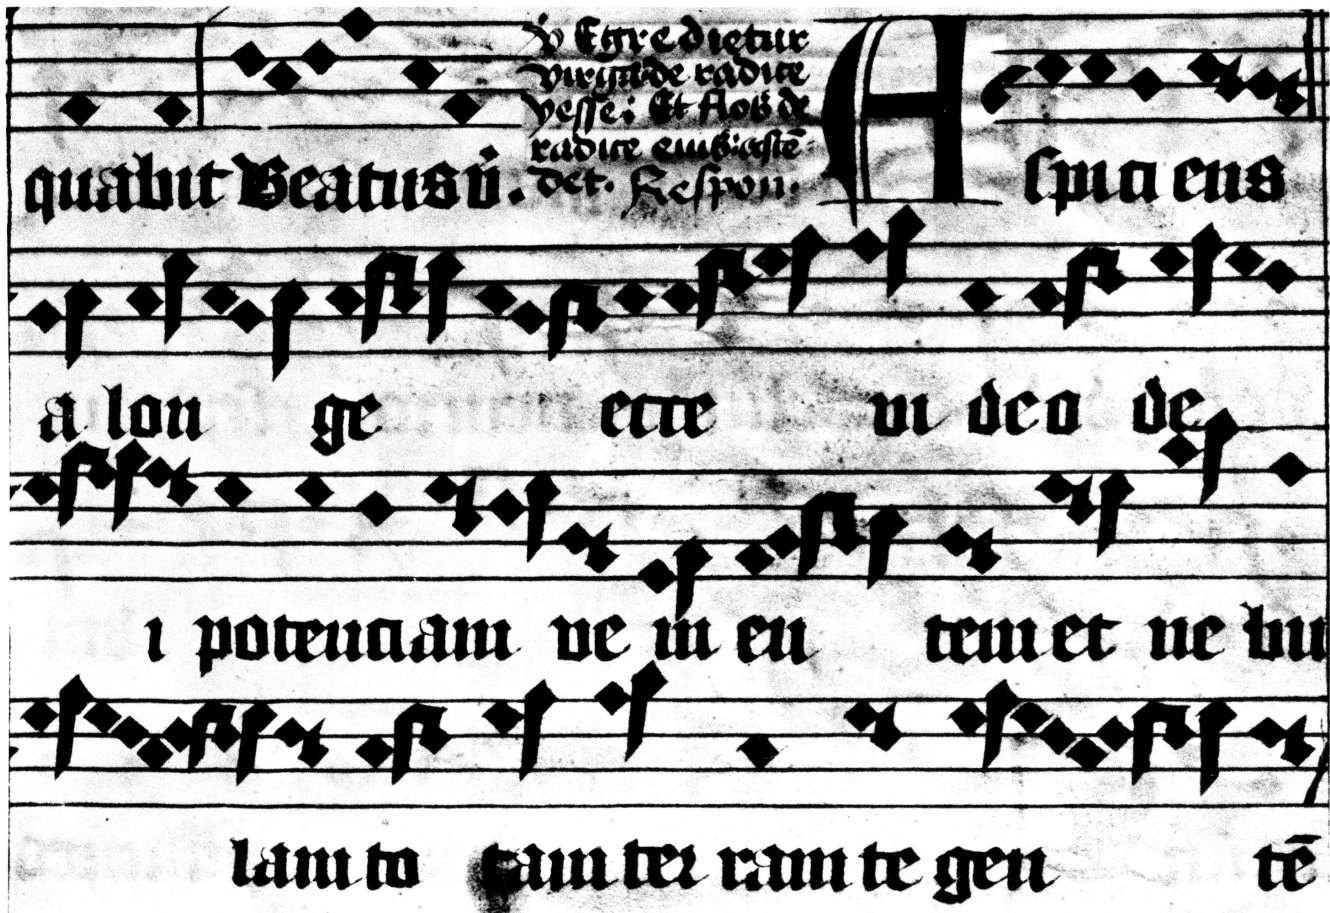 quabit Beatus v̉.
v̉ Egredietur
virga de radice
yesse: Et flos de
radice eius asc̄e
det. Respon.
Aspici ens
a lon ge ecce vi deo de
i potenciam ve ni en tem et ne bu
lam to tam ter ram te gen tē